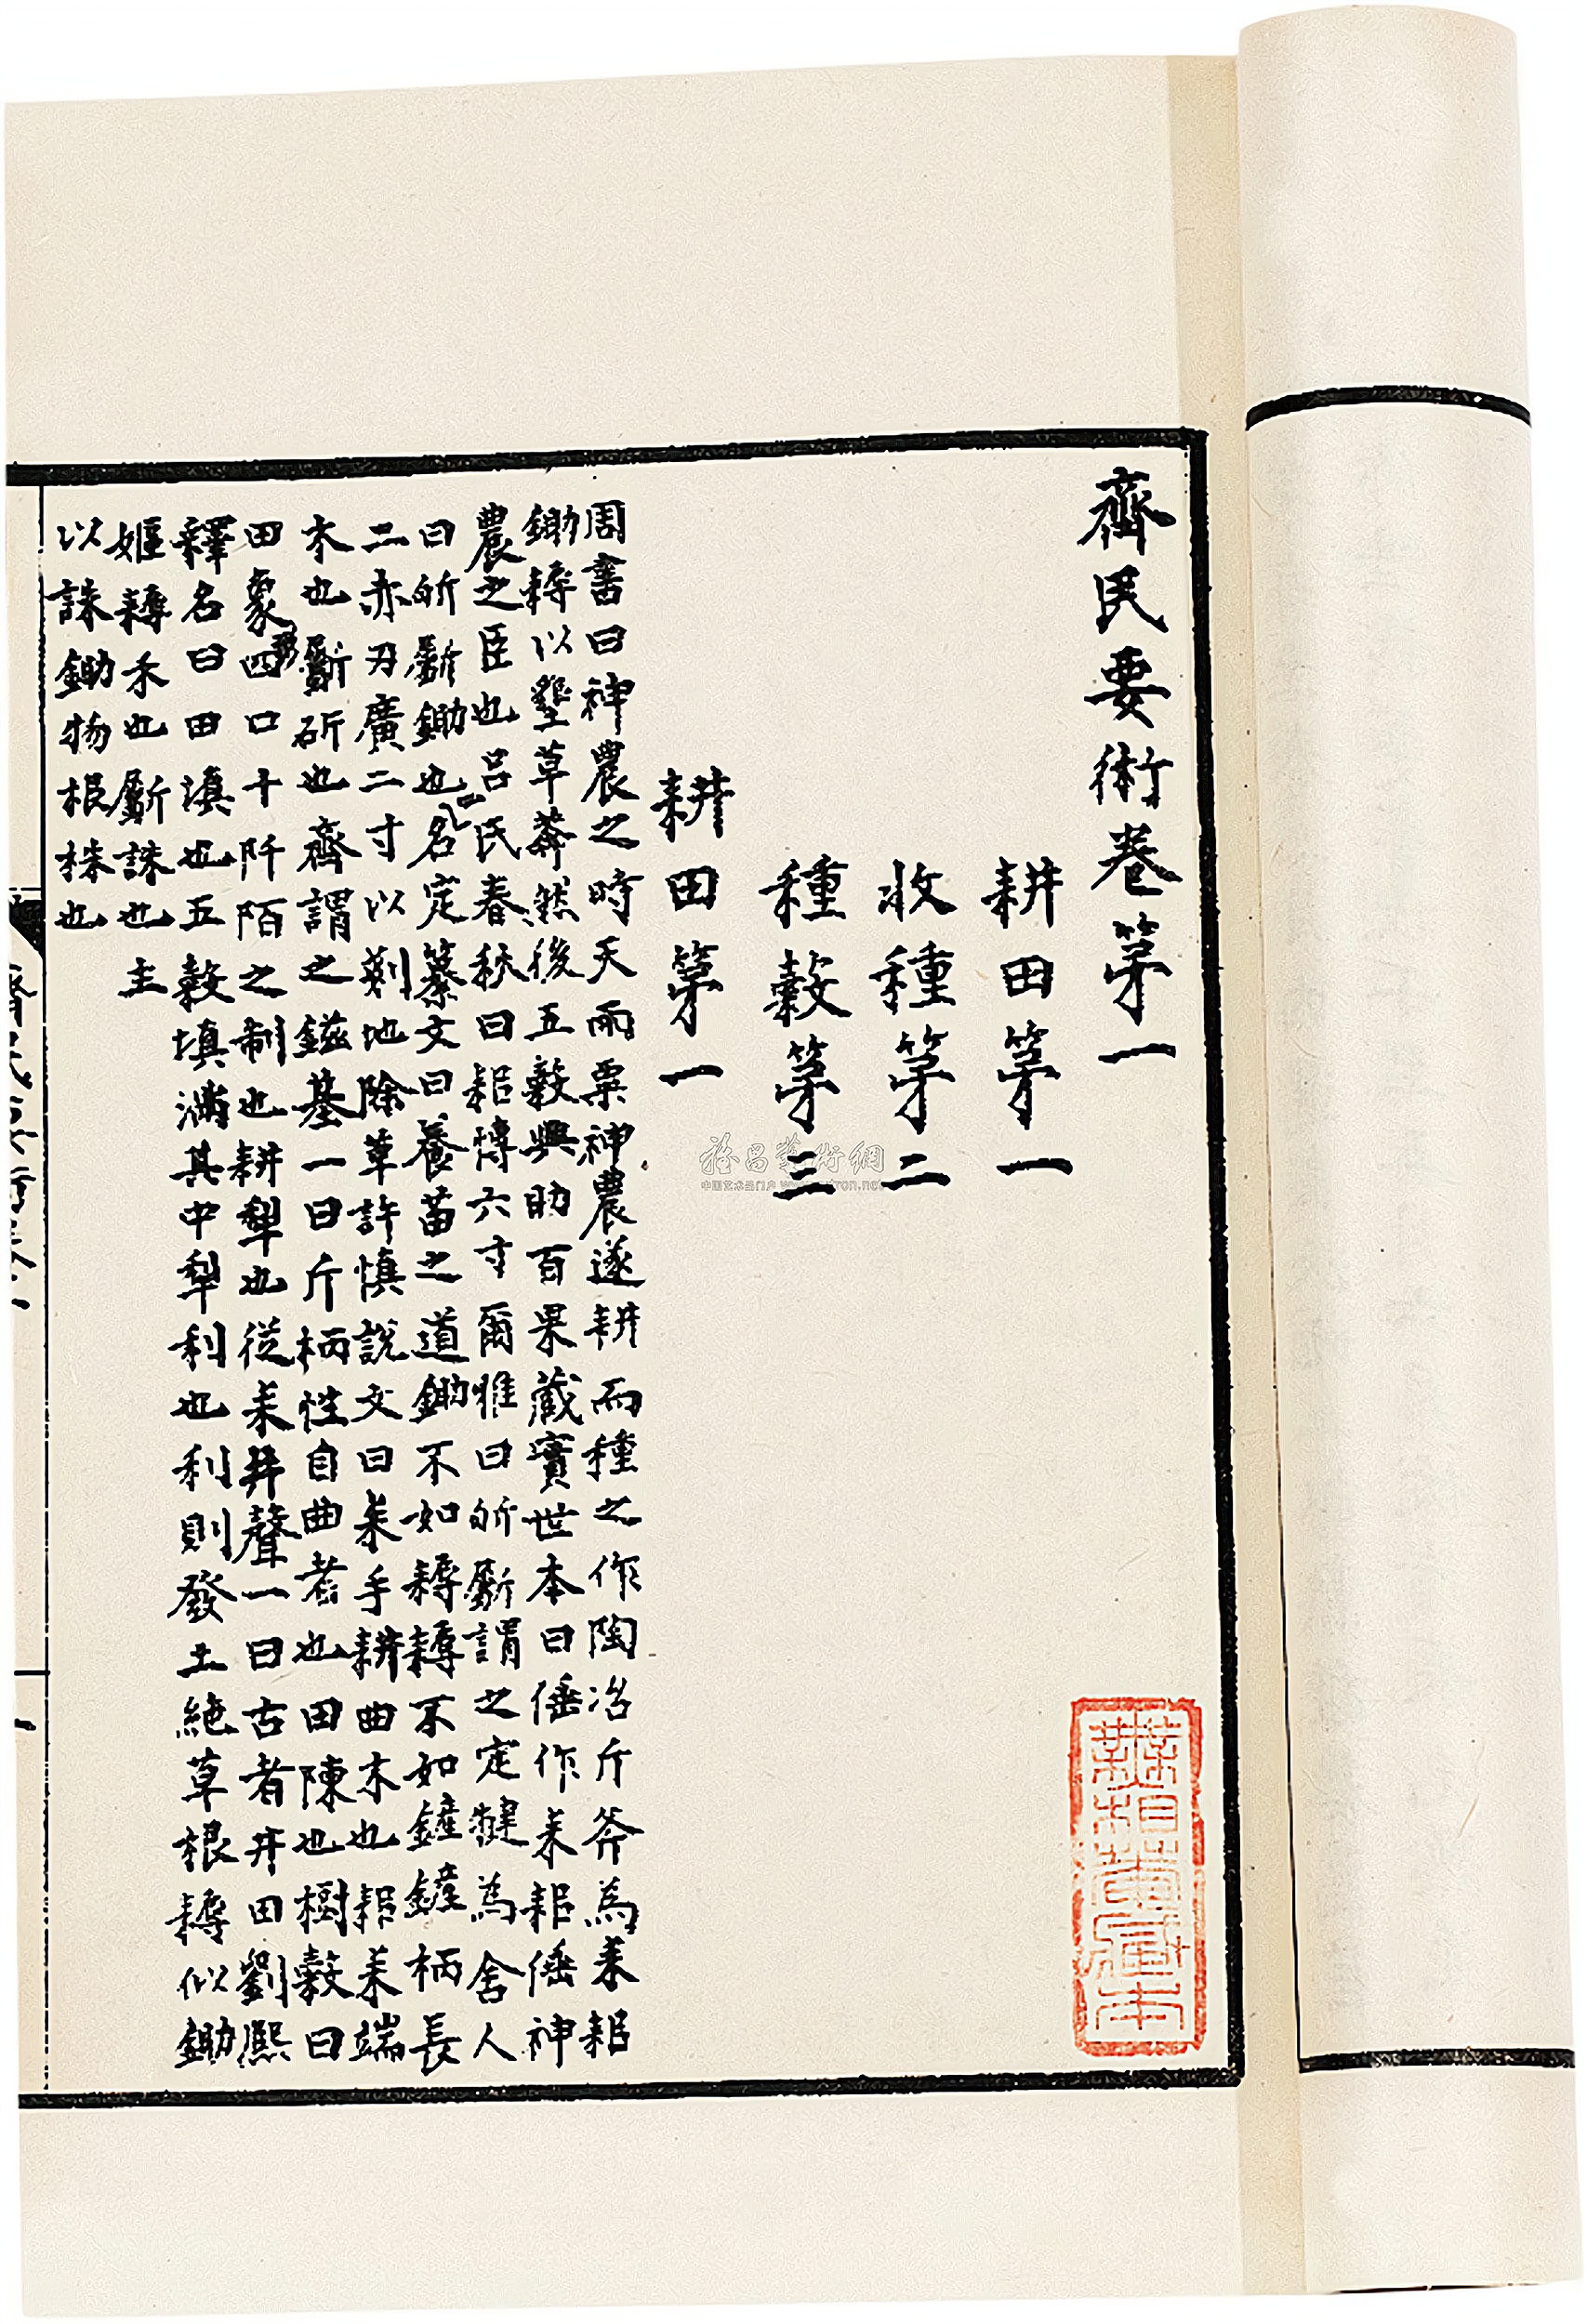 齊民要術卷第一
耕田第一
收種第二
種穀第三
耕田第一
周書曰神農之時天雨粟神農遂耕而種之作陶冶斤斧為耒耜
鋤耨以墾草莽然後五穀興助百果藏實世本曰倕作耒耜倕神
農之臣也呂氏春秋曰耜博六寸爾雅曰斪斸謂之定犍為舍人
曰斪斸鋤也名定纂文曰養苗之道鋤不如耨耨不如鏟鏟柄長
二赤刃廣二寸以剗地除草許慎說文曰耒手耕曲木也耜耒端
木也斸斫也齊謂之鎡基一曰斤柄性自曲者也田陳也樹穀曰
田象四口十阡陌之制也耕犁也從耒井聲一曰古者井田劉熙
釋名曰田填也五穀填滿其中犁利也利則發土絕草根耨似鋤
嫗耨禾也斸誅也主
以誅鋤物根株也
雅昌藝術網
中国艺术品门户 www.artron.net